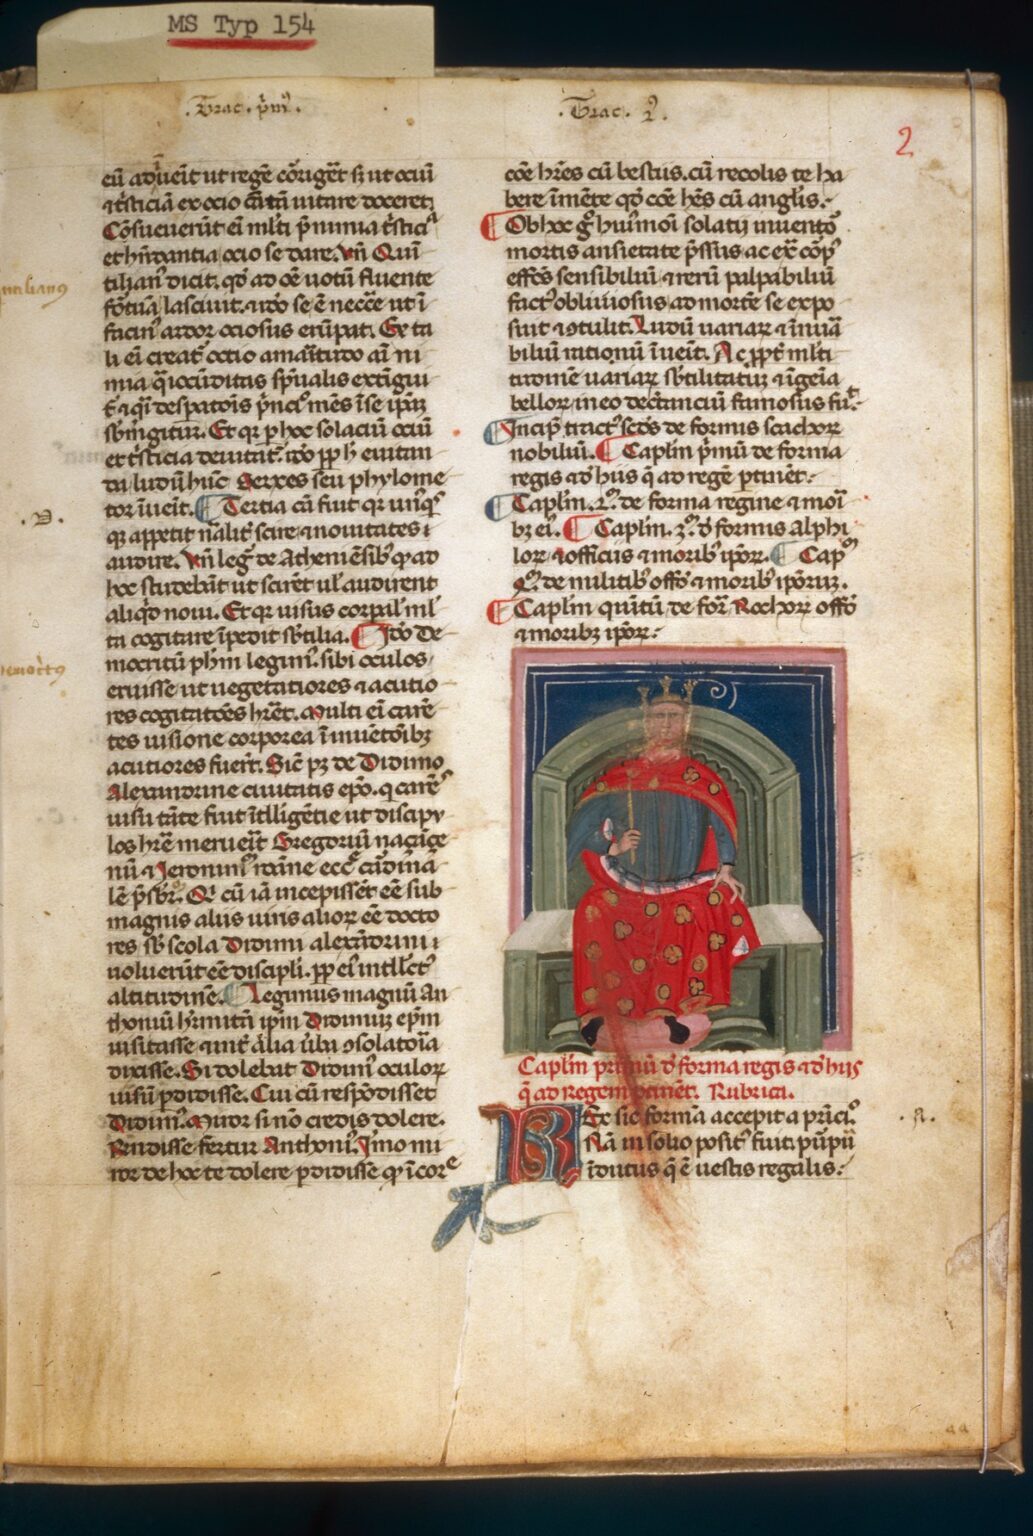 MS Typ 154
.Trac. p̄mꝰ.
.Trac. 2ꝰ.
2
eū adueīt ut regē coͬrigēt sꝫ ut ociū
⁊ t̄sticiā ex ocio cātū uitare doceretꝫ
Cōsueuerūt eī ml̄ti p̄ nimia t̄sticiᵃ
et hūdantia ocio se dare. Vn̄ Quī
tiliāꝰ dicit. qd̓ ad oē uotū fluente
fōtūa lasciuit.
faciꝰ ardor ociosus erūpat. Ex ta
li eī creat̓ octio amātudo aī ni
mia q̄ iocūditas sp̄ualis extīgui
t̄ ⁊ qͥ despatōis p̄ncꝰ mēs ī se ip̄aꝫ
sb̓mgitur. Et qꝛ p hoc solaciū ociū
et t̄sticia deuitat̓. iꝺo pp h euitan
da ludū hūc Serxes seu phylome
tor īueīt. ¶ Tertia cā fuit qꝛ unꝰqͥs
qꝫ appetit nāliṫ scire ⁊ nouitates
audire. Vn̄ legꝰ de Atheniēsibꝰ qꝙ ad
hoc studebāt ut scirēt ul̓ audirent
aliqͥd noui. Et qꝛ uisus corpal̓ ml̓
ta cogitare īpedit sb̓tilia. ¶ Iꝺo De
mocritū ph̄m legimꝰ. sibi oculos
eruisse ut uegetatiores ⁊ acutio
res cogitatōes hr̄et. Multi eī carē
tes uisione corporea ī inuētōibꝫ
acutiores fuerūt. Sic pꝫ de Didimo
Alexandrine ciuitatis ep̄o. qͥ carēs
uisu tāte fuit ītelligētie ut discipu
los hr̄e meruerīt Gregoriū naçāçe
nū ⁊ Ieronimū romane ecc̄e cardinā
lē p̄sbr̄. Qͥ cū iā incepissēt eē sub
magnis aliis uiris alioꝝ eē docto
res sb̓ scola Didimi alexādrini
uoluerūt eē discipl̓i. pp eiꝰ intll̓ctꝰ
altitudinē. ¶ Legimus magnū An
thoniū hērmitā ip̄m Didimuꝫ ep̄m
uisitasse ⁊ īnt̓ ālia ūba ꝯsolatoīa
dixisse. Si dolebat Didimꝰ oculoꝝ
uisū pdidisse. Cui cū respōdisset
Didimꝰ. Miror si nō credis dolere.
Rn̄disse fertur Anthoniꝰ. Imo mi
ror de hoc te dolere pdidisse qꝙ ī corᵉ
cōe hr̄es cū bestiis. cū recolis te ha
bere ī mēte qd̓ cōe hēs cū angl̓is.
¶ Ob hoc gͦ hīꝰmoī solatii inuentoꝰ
mortis ansietate p̄ssus ac ex͞ cōpꝰ
effcͦs sensibiliū ⁊ rerū palpabiliū
factꝰ obliuiosus ad mortē se expo
suit ⁊ ꝯtulit. Ludū uariaꝝ ⁊ inuia
biliū rationū īueīt. Ac ppt̓ ml̓ti
tudinē uariaꝝ sb̓tilitatuꝫ ⁊ īgeīa
belloꝝ in eo dectanciū famosus fuit.
¶ Incip̄ tractꝰ secd̓s de formis scachoꝝ
nobiliū. ¶ Capl̓m p̄mū de forma
regis ⁊ d̓ hiis q̄ ad regē ptinēt:
¶ Capl̓m. 2ꝰ. de forma regine ⁊ moī
bꝫ eiꝰ. ¶ Capl̓m. 3ꝰ. d̓ formis alphi
loꝝ ⁊ officiis ⁊ moribꝰ ipoꝝ. ¶ Cap̄ᵐ
4ꝰ. de militibꝰ offoͦ ⁊ moribꝰ ipōruꝫ.
¶ Capl̓m quītū de forᵃ Rochoꝝ offoͦ
⁊ moribꝫ ipoꝝ:
Capl̓m primū d̓ forma regis ⁊ d̓ hiis
q̄ ad Regem ptinēt. Rubrica.
REx sic formā accepit a p̄nciꝰ.
Nā in solio positꝰ fuit. pūpū
īdutus q̄ ē uestis regalis:
.D.
.R.